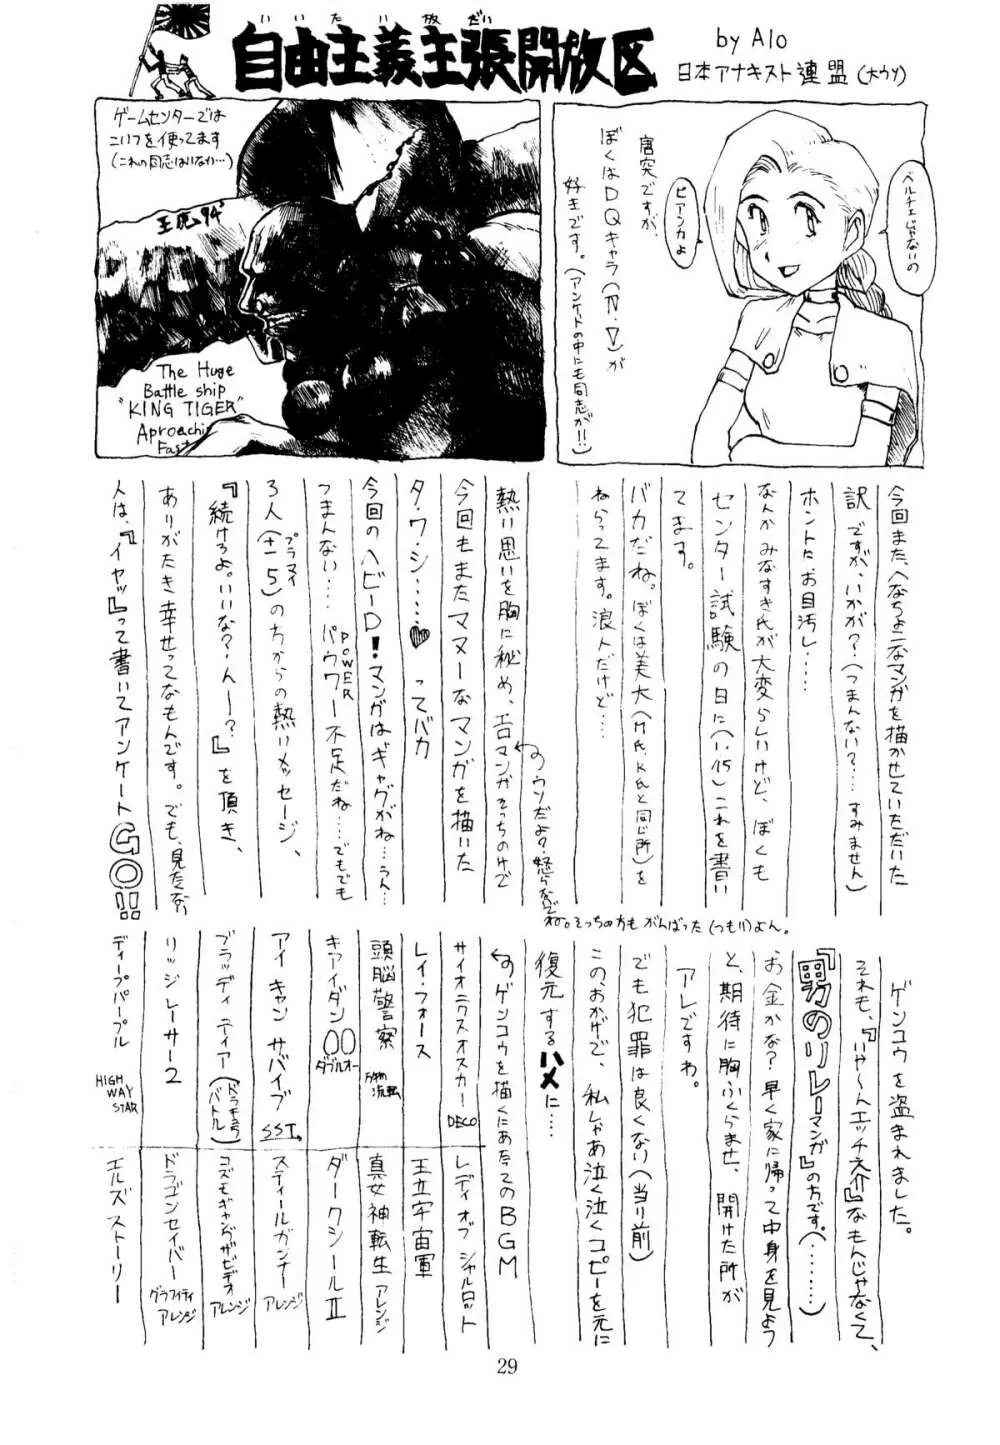 いいたい放だい
自由主義主張開放区
by Alo
日本アナキスト連盟(大ウソ)
ベルチェじゃないの
ビアンカよ
唐突ですが、
ぼくはDQキャラ(Ⅳ・Ⅴ)が
好きです。(アンケートの中にも同志が!!)
ゲームセンターでは
こいつを使ってます
(これの同志はいない…)
王虎94'
The Huge
Battle ship
"KING TIGER"
Aproachin
Fast
今回また、へなちょこなマンガを描かせていただいた
訳ですが、いかが?(つまんない?…すみません)
ホントにお目汚し……
なんかみなすき氏が大変らしいけど、ぼくも
センター試験の日に(1.15)これを書い
てます。
バカだね。ぼくは美大(M氏、K氏と同じ所)を
ねらってます。浪人だけど…
熱い思いを胸に秘め、エロマンガそっちのけで
(のウソだよ?怒らないでね。そっちの方もがんばった(つもり)よん。
今回もまたマヌーなマンガを描いた
タ・ワ・シ……♥ってバカ
今回のヘビーD!マンガはギャグがね…うん…
つまんない…パウワー不足だね……でもでも
POWER
3人(±5)の方からの熱いメッセージ、
プラマイ
『続けろよ。いいな?んー?』を頂き、
ありがたき幸せってなもんです。でも、見たない
人は、『イヤッ』って書いてアンケートGO!!
ゲンコウを盗まれました。
それも、『いや~んエッチ之介』なもんじゃなくて、
『男のリレーマンガ』の方です。(………)
お金かな?早く家に帰って中身を見よう
と、期待に胸ふくらませ、開けた所が
アレですわ。
でも犯罪は良くない(当り前)
この、おかげで、私しゃあ泣く泣くコピーを元に
復元するハメに…
のゲンコウを描くにあたってのBGM
サイオニクスオスカー DECO
レディオブシャルロット
レイ・フォース
王立宇宙軍
頭脳警察 万物流転
真女神転生 アレンジ
キァイダン00
ダブルオー
ダークシールⅡ
アイ キャン サバイブ SST
スティールガンナー アレンジ
ブラッディ ティアー(ドラキュラバトル)
コズモギャングザビデオ アレンジ
リッジレーサー2
ドラゴンセイバー グラフィティ アレンジ
ディープパープル HIGH WAY STAR
エルズストーリー
29